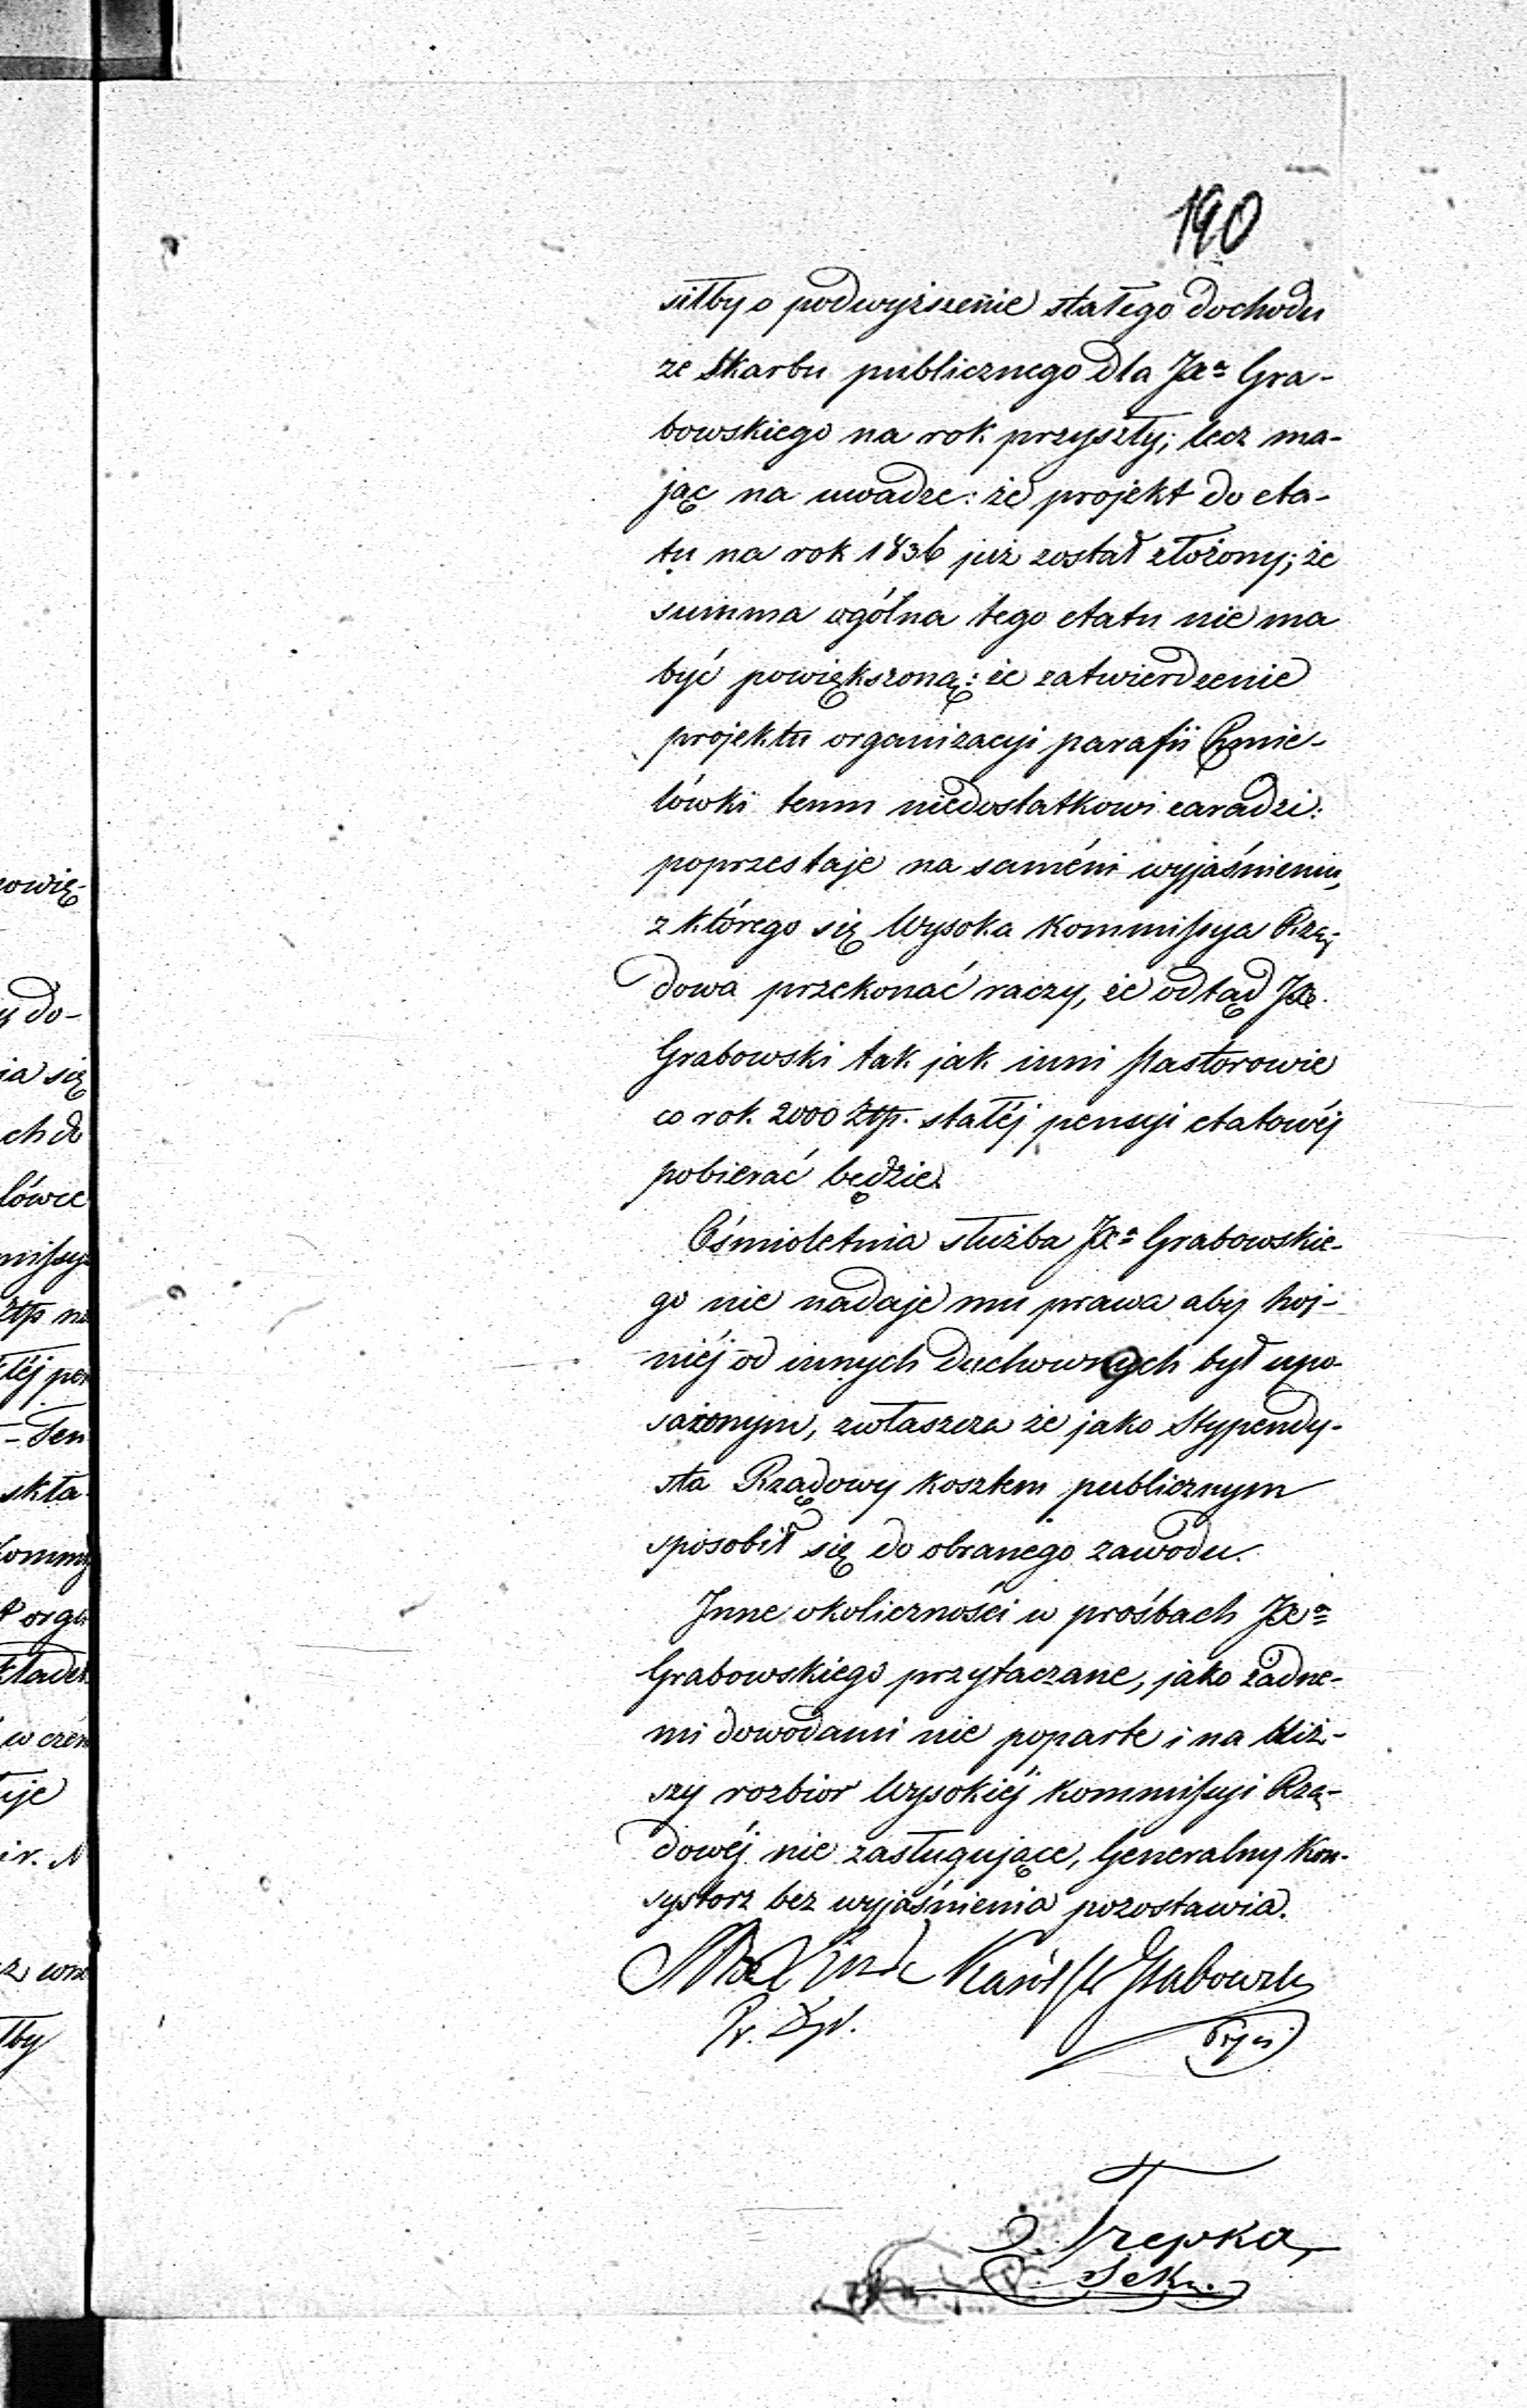 190
siłby o podwyższenie stałego dochodu
ze Skarbu publicznego dla Xa Gra-
bowskiego na rok przyszły; lecz ma-
jąc na uwadze: że projekt do eta-
tu na rok 1836 już został złożony; że
summa ogólna tego etatu nie ma
być powiększoną: że zatwierdzenie
projektu organizacyi parafii Chmie-
lówki temu niedostatkowi zaradzi:
poprzestaje na samém wyjaśnieniu,
z którego się Wysoka Kommissya Rzą-
dowa przekonać raczy, że odtąd
Grabowski tak jak inni Pastorowie
co rok 2000 Złp. stałéj pensyi etatowéj
pobierać będzie.
Ośmioletnia służba Xa Grabowskie-
go nie nadaje mu prawa aby hoj-
niéj od innych duchownych był upo-
sażonym, zwłaszcza że jako Stypendy-
sta Rządowy kosztem publicznym
sposobił się do obranego zawodu.
Inne okoliczności w prośbach Xa
Grabowskiego przytaczane, jako żadne-
mi dowodami nie poparte i na bliż-
szy rozbior Wysokiéj Kommissyi Rzą-
dowéj nie zasługujące, Generalny Kon-
systorz bez wyjaśnienia pozostawia.
Karól
T. Trepka,
Sekr.
owię-
do-
ia się
ch do
lówce
missy
Złp na
łéj pen
Ten
skła
ommis
orga
w czém
uje
ir. N
z
łby